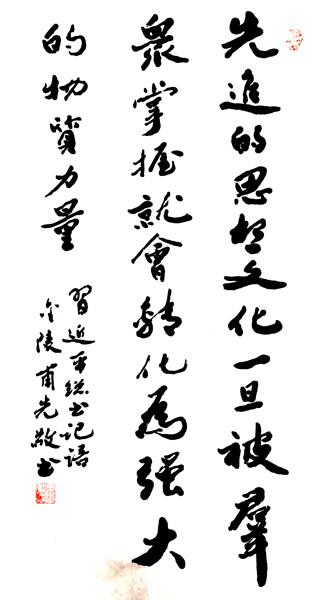 先進的思想文化一旦被羣
衆掌握就會轉化為强大
的物質力量
習近平総书记語
金陵甫先敬书